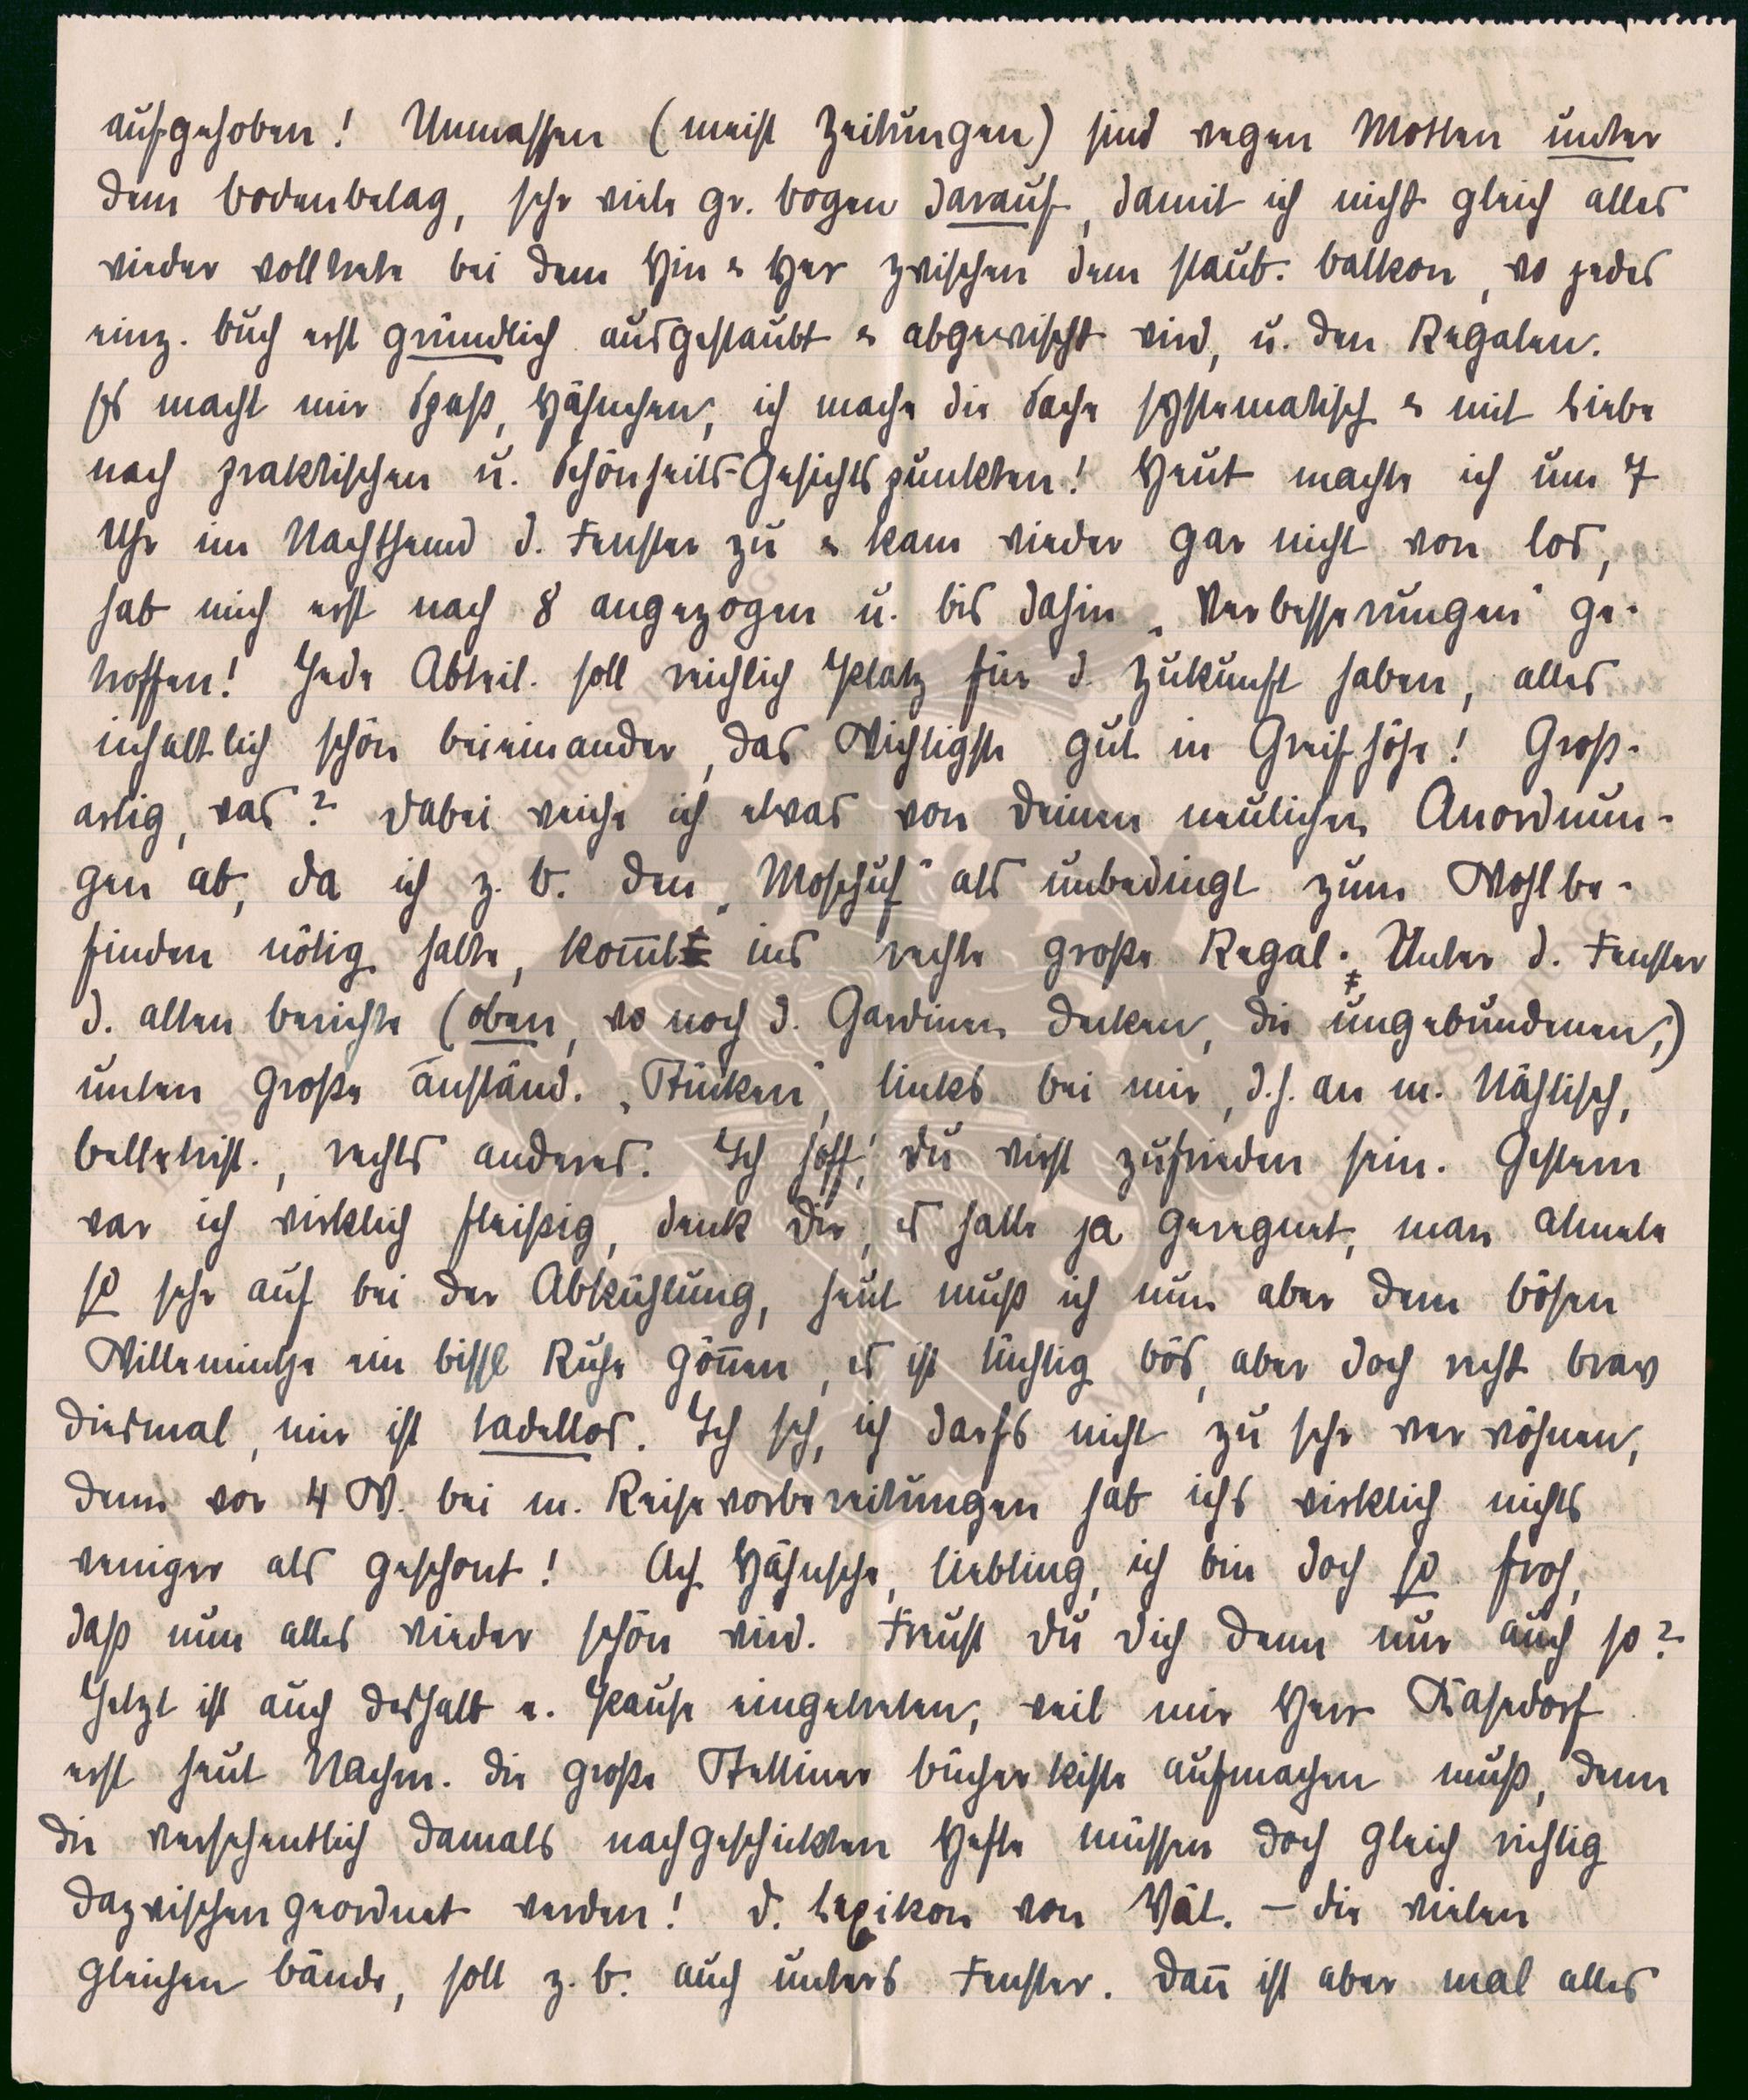 aufgehoben! Unmassen (meist Zeitungen) sind wegen Motten unter
dem Bodenbelag, sehr viele gr. Bogen darauf, damit ich nicht gleich alles
wieder volltrete bei dem Hin & Her zwischen dem staub. Balkon, wo jedes
einz. Buch erst gründlich ausgestaubt & abgewischt wird, u. den Regalen.
Es macht mir Spaß, Hähnchen, ich mache die Sache systematisch & mit Liebe
nach praktischen u. Schönheits-Gesichtspunkten! Heut machte ich um 7
Uhr im Nachthemd d. Fenster zu & kam wieder gar nicht von los,
hab mich erst nach 8 angezogen u. bis dahin „Verbesserungen" ge-
troffen! Jede Abteil. soll reichlich Platz für d. Zukunft haben, alles
inhaltlich schön beieinander, das Wichtigste gut in Greifhöhe! Groß-
artig, was? Dabei weiche ich etwas von Deinen neulichen Anordnun-
gen ab, da ich z. B. den „Moschus" als unbedingt zum Wohlbe-
finden nötig halte, kom̄t ins rechte große Regal. Unter d. Fenster
d. alten Berichte (oben, wo noch d. Gardinen decken, die ungebundenen,)
unten große anständ. „Rücken", links bei mir, d.h. an m. Nähtisch,
belletrist., rechts anderes. Ich hoff, Du wirst zufrieden sein. Gestern
war ich wirklich fleißig, denk Dir, es hatte ja geregnet, man atmete
so sehr auf bei der Abkühlung, heut muß ich nun aber dem bösen
Willeminche ein bissl Ruhe gön̄en, es ist tüchtig bös, aber doch recht brav
diesmal, mir ist tadellos. Ich seh, ich darfs nicht zu sehr verwöhnen,
denn vor 4 W. bei m. Reisevorbereitungen hab ichs wirklich nichts
weniger als geschont! Ach Hähnsche, Liebling, ich bin doch so froh,
daß nun alles wieder schön wird. Freust Du Dich denn nur auch so?
Jetzt ist auch deshalb e. Pause eingetreten, weil mir Herr Käsedorf
erst heut Nachm. die große Stettiner Bücherkiste aufmachen muß, denn
die versehentlich damals nachgeschickten Hefte müssen doch gleich richtig
dazwischengeordnet werden! D. Lexikon von Vät. – die vielen
gleichen Bände, soll z. B. auch unters Fenster. Dan̄ ist aber mal alles